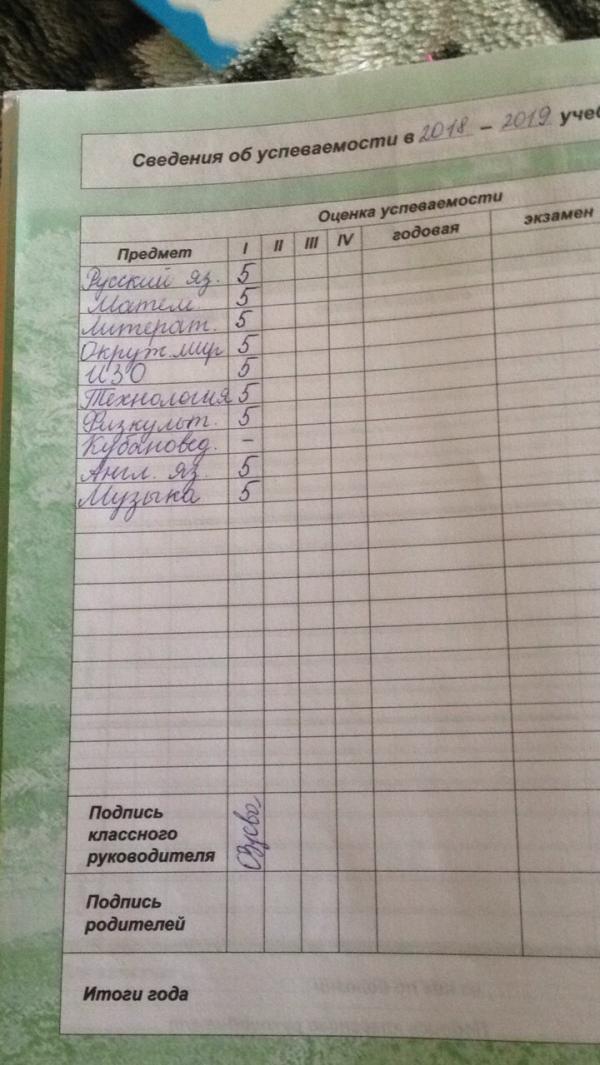 Сведения об успеваемости в 2018 – 2019 учеб
Оценка успеваемости
Предмет I II III IV годовая экзамен
Русский яз. 5
Матем. 5
Литерат. 5
Окруж. мир 5
ИЗО 5
Технология 5
Физкульт. 5
Кубановед. –
Англ. яз. 5
Музыка 5
Подпись
классного
руководителя
Подпись
родителей
Итоги года